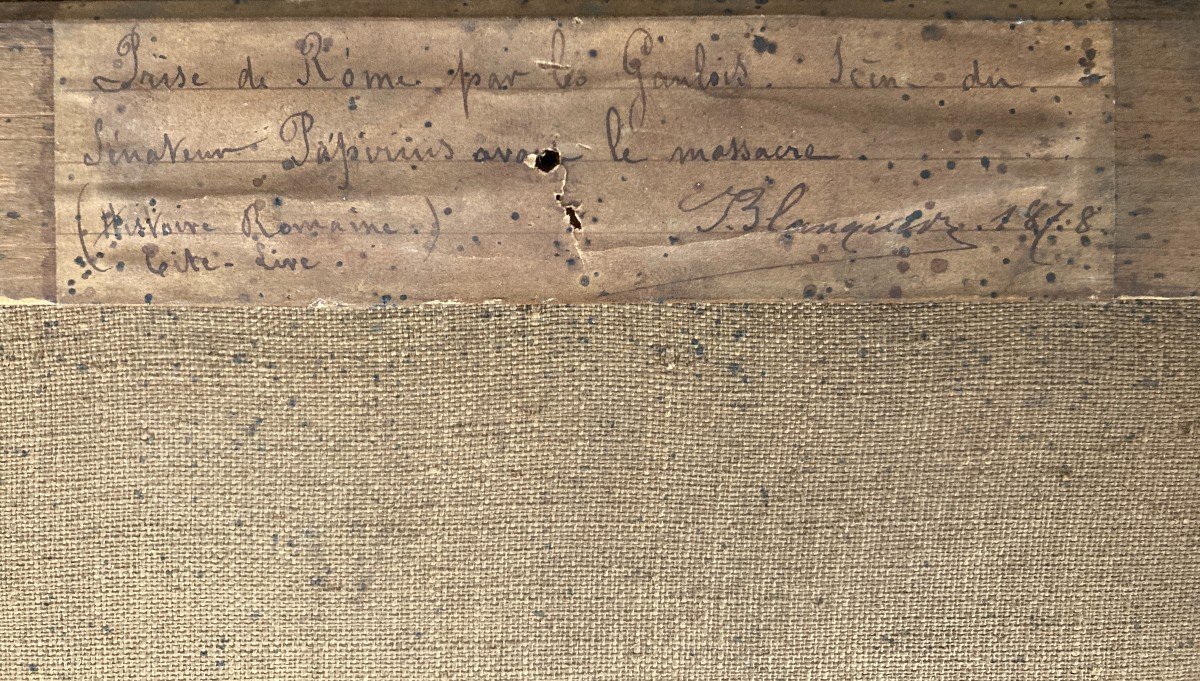 Prise de Rome par les Gaulois. Scèn du
Sénateur Papirius avant le massacre.
(Histoire Romaine.)
Tite-Live.
1878.